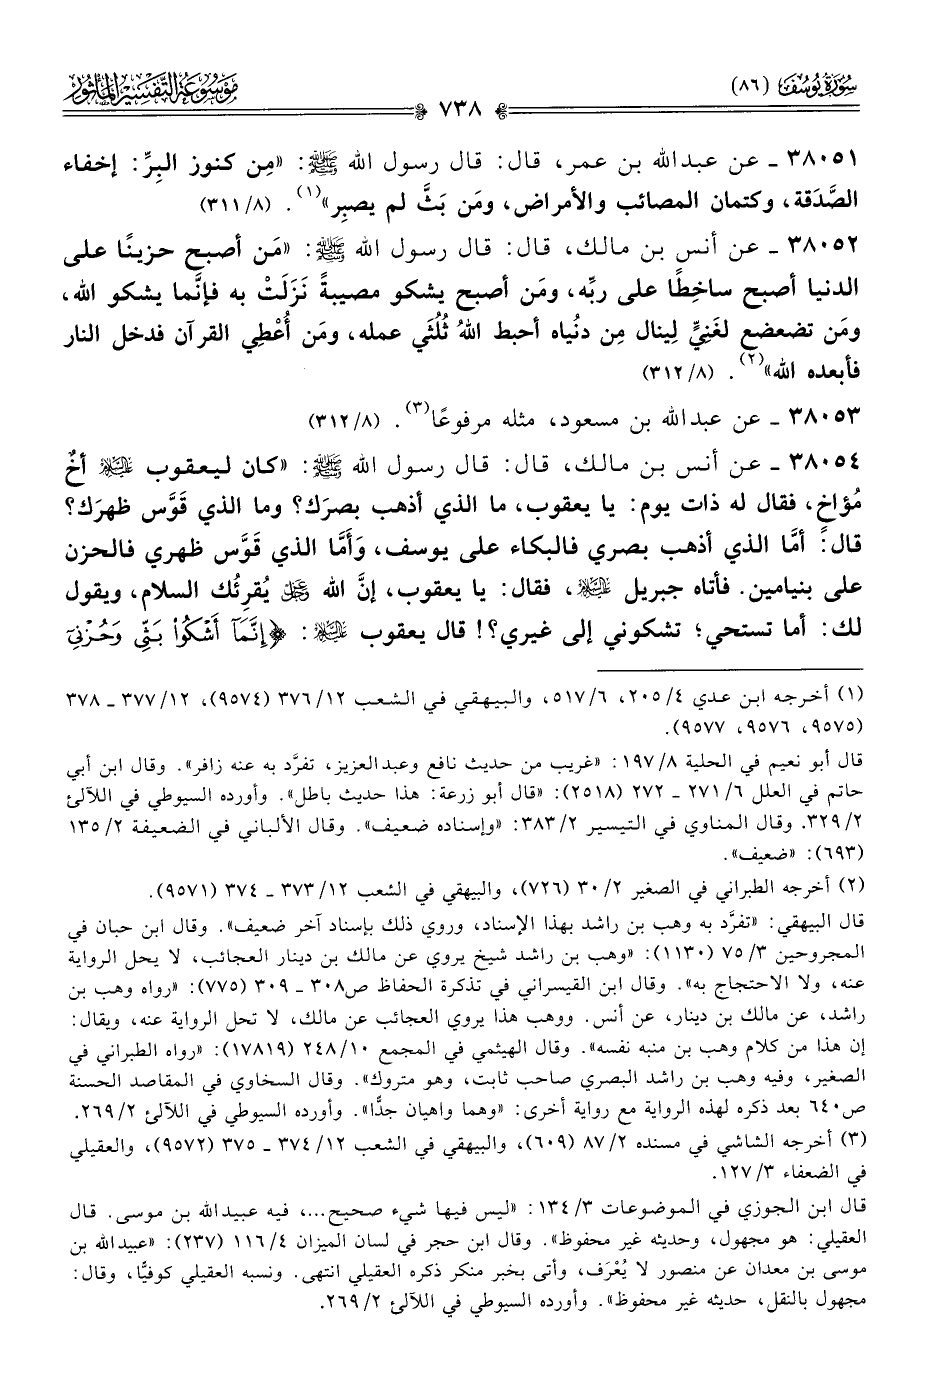 سُورَةُ يُوسُفَ (٨٦)
٧٣٨
مَوْسُوعَةُ التَّفْسِيرِ المَأْثُورِ
٣٨٠٥١ ـ عن عبدالله بن عمر، قال: قال رسول الله ﷺ: «مِن كنوز البِرِّ: إخفاء
الصَّدَقة، وكتمان المصائب والأمراض، ومَن بَثَّ لم يصبِر»(١). (٣١١/٨)
٣٨٠٥٢ ـ عن أنس بن مالك، قال: قال رسول الله ﷺ: «مَن أصبح حزينًا على
الدنيا أصبح ساخِطًا على ربِّه، ومَن أصبح يشكو مصيبةً نَزَلَتْ به فإنَّما يشكو الله،
ومَن تضعضع لغَنِيٍّ لِينال مِن دنُياه أحبط اللهُ ثُلُثَي عمله، ومَن أُعْطِي القرآن فدخل النار
فأبعده الله»(٢). (٣١٢/٨)
٣٨٠٥٣ ـ عن عبدالله بن مسعود، مثله مرفوعًا(٣). (٣١٢/٨)
٣٨٠٥٤ ـ عن أنس بن مالك، قال: قال رسول الله ﷺ: «كان ليعقوب عليه السلام أخٌ
مُؤاخٍ، فقال له ذات يوم: يا يعقوب، ما الذي أذهب بصرَك؟ وما الذي قَوَّس ظهرَك؟
قال: أمَّا الذي أذهب بصري فالبكاء على يوسف، وَأَمَّا الذي قَوَّس ظهري فالحزن
على بنيامين. فأتاه جبريل عليه السلام، فقال: يا يعقوب، إنَّ الله عز وجل يُقرِئُك السلام، ويقول
لك: أما تستحي؛ تشكوني إلى غيري؟! قال يعقوب عليه السلام: ﴿إِنَّمَآ أَشْكُواْ بَثِّي وَحُزْنِيٓ
(١) أخرجه ابن عدي ٢٠٥/٤، ٥١٧/٦، والبيهقي في الشعب ٣٧٦/١٢ (٩٥٧٤)، ٣٧٧/١٢ ـ ٣٧٨
(٩٥٧٥، ٩٥٧٦، ٩٥٧٧).
قال أبو نعيم في الحلية ١٩٧/٨: «غريب من حديث نافع وعبدالعزيز، تفرَّد به عنه زافر». وقال ابن أبي
حاتم في العلل ٢٧١/٦ ـ ٢٧٢ (٢٥١٨): «قال أبو زرعة: هذا حديث باطل». وأورده السيوطي في اللآلئ
٣٢٩/٢. وقال المناوي في التيسير ٣٨٣/٢: «وإسناده ضعيف». وقال الألباني في الضعيفة ١٣٥/٢
(٦٩٣): «ضعيف».
(٢) أخرجه الطبراني في الصغير ٣٠/٢ (٧٢٦)، والبيهقي في الشعب ٣٧٣/١٢ ـ ٣٧٤ (٩٥٧١).
قال البيهقي: «تفرَّد به وهب بن راشد بهذا الإسناد، وروي ذلك بإسناد آخر ضعيف». وقال ابن حبان في
المجروحين ٧٥/٣ (١١٣٠): «وهب بن راشد شيخ يروي عن مالك بن دينار العجائب، لا يحل الرواية
عنه، ولا الاحتجاج به». وقال ابن القيسراني في تذكرة الحفاظ ص٣٠٨ ـ ٣٠٩ (٧٧٥): «رواه وهب بن
راشد، عن مالك بن دينار، عن أنس. ووهب هذا يروي العجائب عن مالك، لا تحل الرواية عنه، ويقال:
إن هذا من كلام وهب بن منبه نفسه». وقال الهيثمي في المجمع ٢٤٨/١٠ (١٧٨١٩): «رواه الطبراني في
الصغير، وفيه وهب بن راشد البصري صاحب ثابت، وهو متروك». وقال السخاوي في المقاصد الحسنة
ص٦٤٠ بعد ذكره لهذه الرواية مع رواية أخرى: «وهما واهيان جدًّا». وأورده السيوطي في اللآلئ ٢٦٩/٢.
(٣) أخرجه الشاشي في مسنده ٨٧/٢ (٦٠٩)، والبيهقي في الشعب ٣٧٤/١٢ ـ ٣٧٥ (٩٥٧٢)، والعقيلي
في الضعفاء ١٢٧/٣.
قال ابن الجوزي في الموضوعات ١٣٤/٣: «ليس فيها شيء صحيح...، فيه عبيدالله بن موسى. قال
العقيلي: هو مجهول، وحديثه غير محفوظ». وقال ابن حجر في لسان الميزان ١١٦/٤ (٢٣٧): «عبيدالله بن
موسى بن معدان عن منصور لا يُعْرَف، وأتى بخبر منكر ذكره العقيلي انتهى. ونسبه العقيلي كوفيًّا، وقال:
مجهول بالنقل، حديثه غير محفوظ». وأورده السيوطي في اللآلئ ٢٦٩/٢.